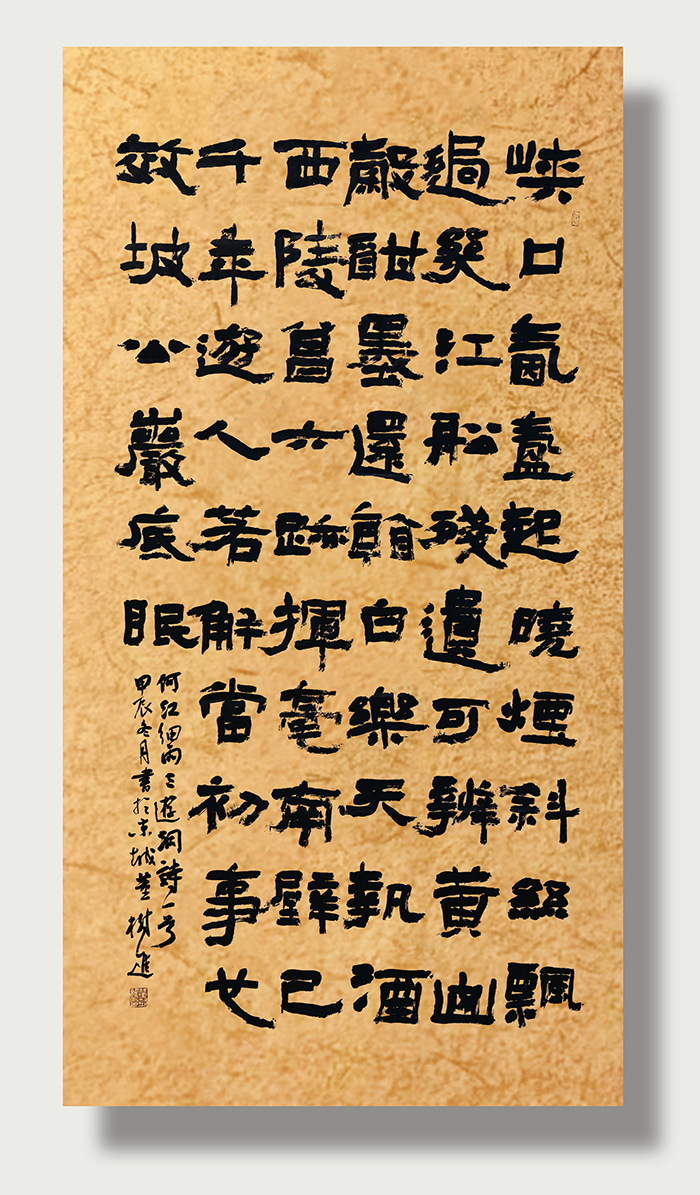 峽口氤起曉煙斜絲飄
過幾江船殘遺可辨黃
酣墨還餘白樂天執酒
西陵六跡揮毫南壁已
千年遊人若解當初事也
效坡公巖底眠
何紅細雨三遊洞詩一首
甲辰冬月書於京城董樹進